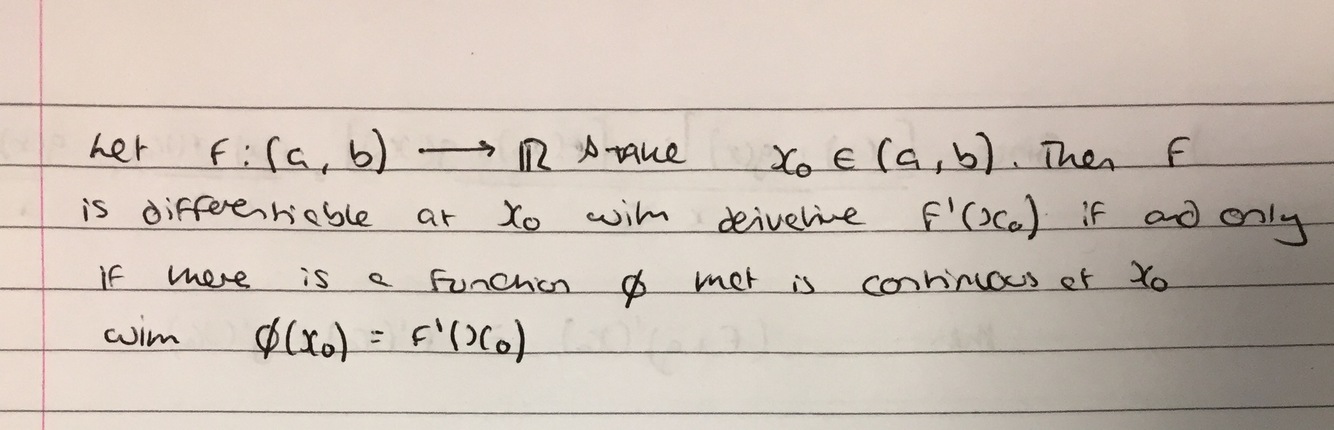 Let f: (a, b) ⟶ ℝ & take x₀ ∈ (a, b). Then f
is differentiable at x₀ with derivative f'(x₀) if and only
if there is a function ϕ that is continuous at x₀
with ϕ(x₀) = f'(x₀)